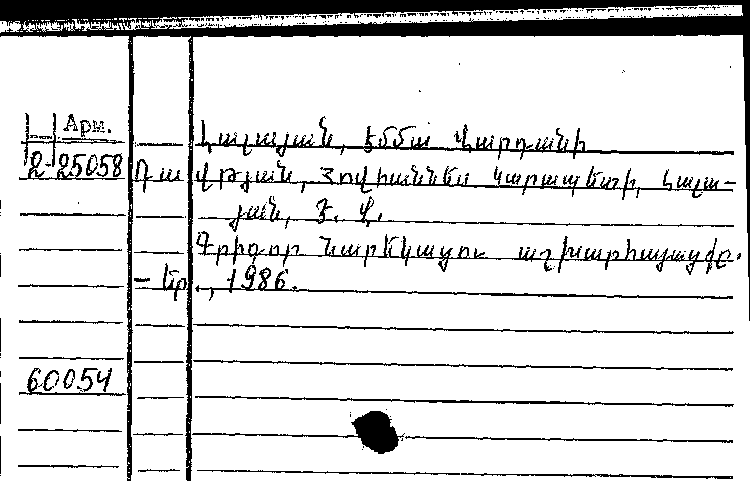 Арм.
Լալայան, Էմմա Վարդանի
2 25058 Դավթյան, Հովհաննես Կարապետի, Լալա-
յան, Է. Վ.
Գրիգոր Նարեկացու աշխարհայացքը.
– Եր., 1986.
60054